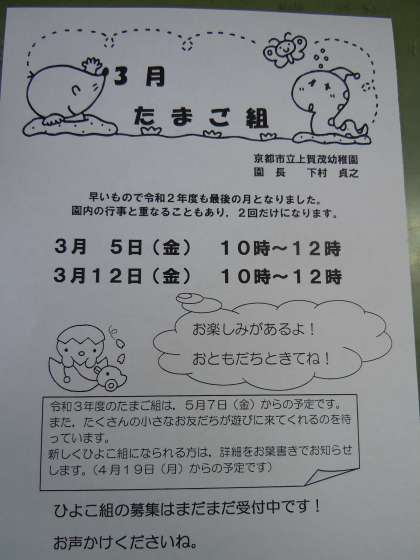 3月
たまご組
京都市立上賀茂幼稚園
園長 下村 貞之
早いもので令和2年度も最後の月となりました。
園内の行事と重なることもあり，2回だけになります。
3月 5日（金） 10時～12時
3月12日（金） 10時～12時
お楽しみがあるよ！
おともだちときてね！
令和3年度のたまご組は，5月7日（金）からの予定です。
また，たくさんの小さなお友だちが遊びに来てくれるのを待
っています。
新しくひよこ組になられる方は，詳細をお葉書きでお知らせ
します。（4月19日（月）からの予定です）
ひよこ組の募集はまだまだ受付中です！
お声かけくださいね。